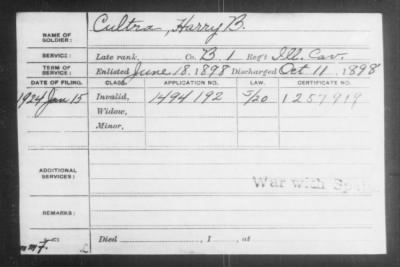 NAME OF SOLDIER: Cultra, Harry B.
SERVICE: Late rank, Co. B. 1 Reg't Ill. Cav.
TERM OF SERVICE: Enlisted June 18. 1898 Discharged Oct 11, 1898
DATE OF FILING. CLASS. APPLICATION NO. LAW. CERTIFICATE NO.
1924 Jan 15 Invalid, 1494192 5/20 1257919
Widow,
Minor,
ADDITIONAL SERVICES:
War with Spain
REMARKS:
Died , 1 , at